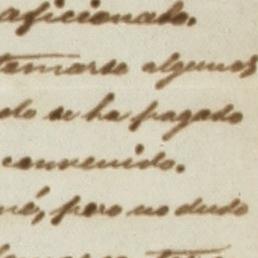 aficionado.
tamarse algunos
do se ha pagado
convenido.
né, pero no dudo